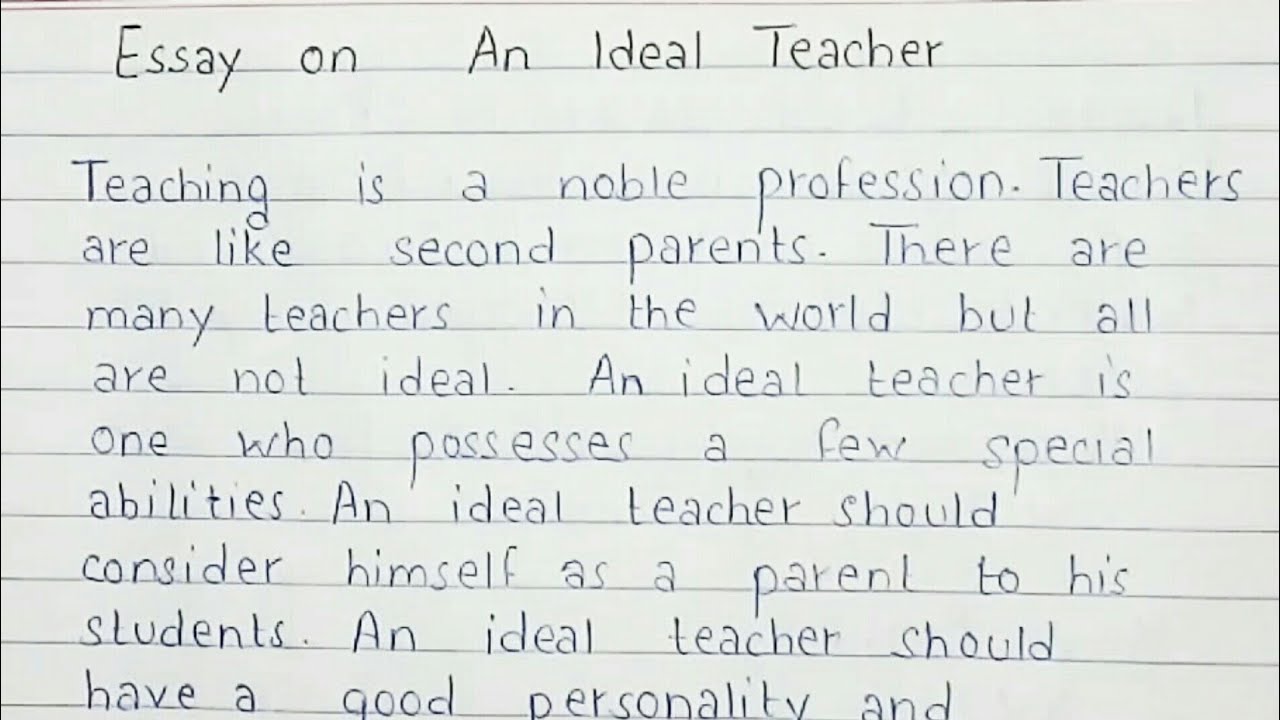 Essay on An Ideal Teacher
Teaching is a noble profession. Teachers
are like second parents. There are
many teachers in the world but all
are not ideal. An ideal teacher is
one who possesses a few special
abilities. An ideal teacher should
consider himself as a parent to his
students. An ideal teacher should
have a good personality and